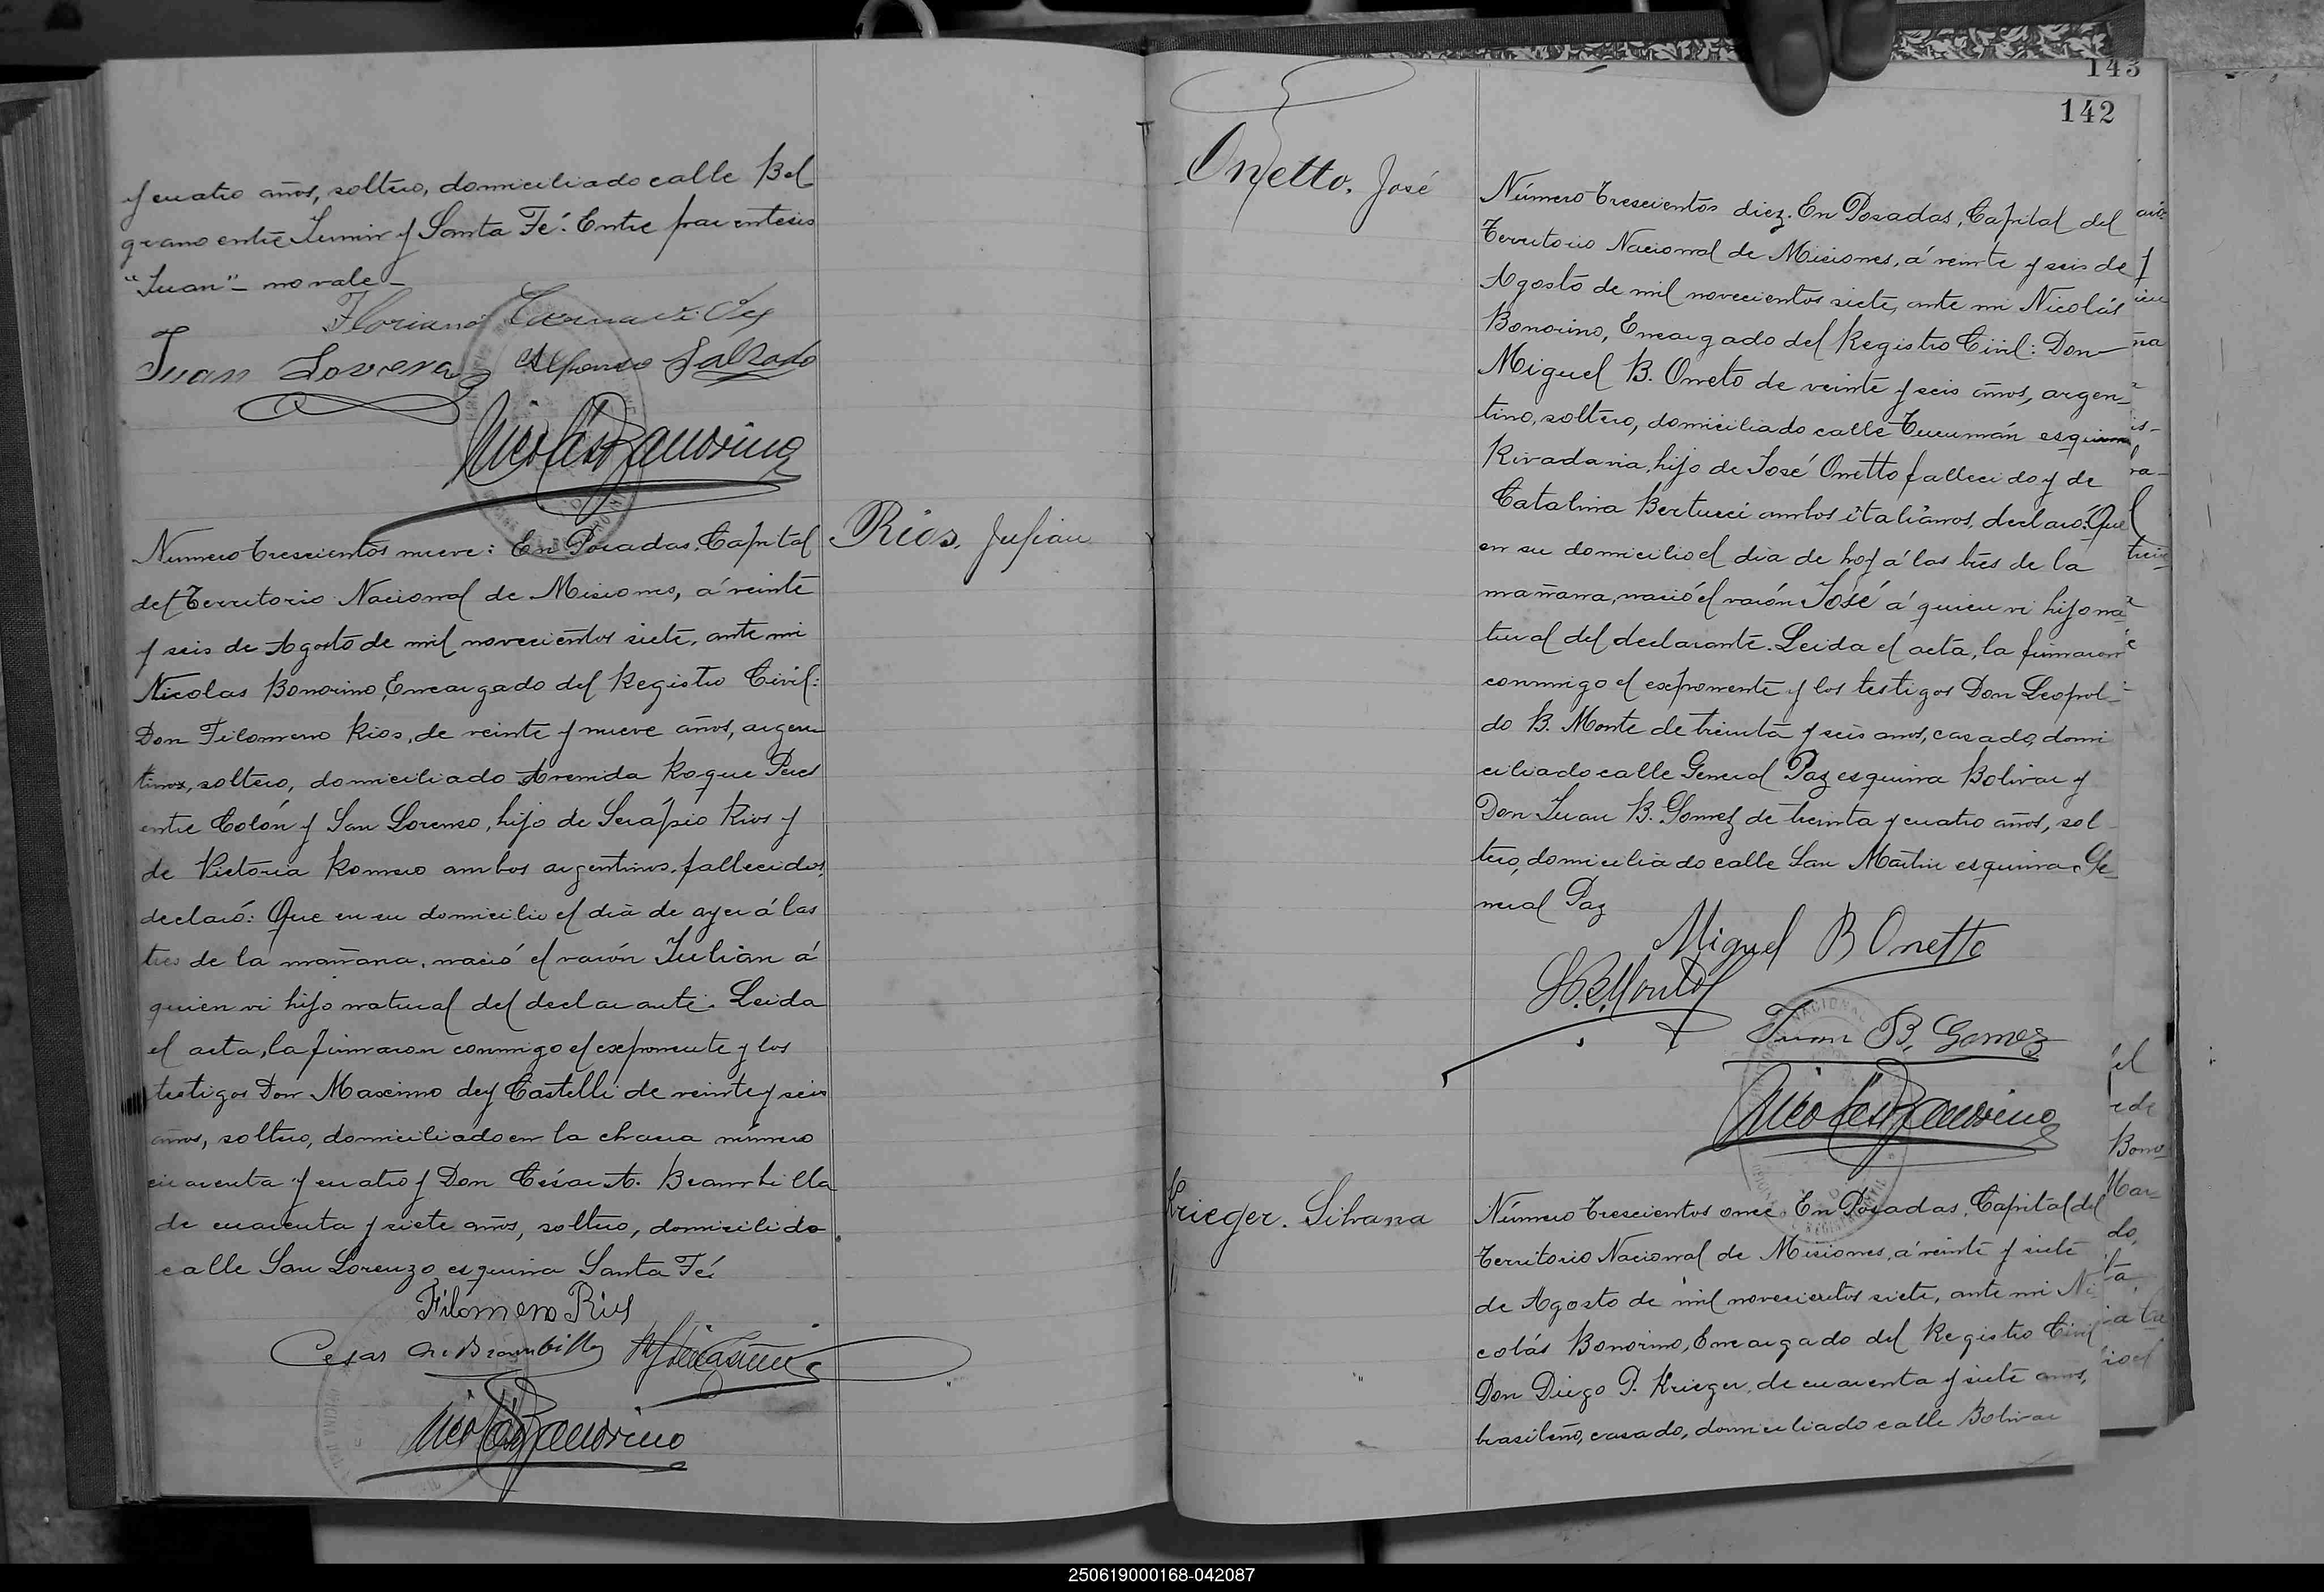 y cuatro años, soltero, domiciliado calle Bel
grano entre Junin y Santa Fé. Entre parentesis
"Juan" - no vale -
Floriano
Juan Lovera Alfonso
Nicolás Bonorino
Número trescientos nueve: En Posadas, Capital
del Territorio Nacional de Misiones, á veinte
y seis de Agosto de mil novecientos siete, ante mi
Nicolas Bonorino, Encargado del Registro Civil:
Don Filomeno Rios, de veinte y nueve años, argen
tino, soltero, domiciliado Avenida Roque Perez
entre Colón y San Lorenso, hijo de Serápio Rios y
de Victoria Romero ambos argentinos, fallecidos,
declaró: Que en su domicilio el dia de ayer á las
tres de la mañana, nació el varón Julian á
quien vi hijo natural del declarante. Leida
el acta, la firmaron conmigo el exponente y los
testigos Don Maximo dey Castelli de veinte y seis
años, soltero, domiciliado en la chacra número
cincuenta y cuatro y Don César A. Brambilla
de cuarenta y siete años, soltero, domicilido
calle San Lorenzo esquina Santa Fé
Filomeno Rios
Cesar A. Brambilla
Nicolás Bonorino
Rios, Julian
143
142
Onetto, José
Número trescientos diez. En Posadas, Capital del
Territorio Nacional de Misiones, á veinte y seis de
Agosto de mil novecientos siete, ante mi Nicolás
Bonorino, Encargado del Registro Civil: Don
Miguel B. Oneto de veinte y seis años, argen-
tino, soltero, domiciliado calle Tucumán esquina
Rivadavia, hijo de José Onetto fallecido y de
Catalina Bertucci ambos italianos, declaró: Que
en su domicilio el dia de hoy á las tres de la
mañana, nació el varón José á quien vi hijo na-
tural del declarante. Leida el acta, la firmaron
conmigo el exponente y los testigos Don Leopol-
do B. Monte de treinta y seis años, casado, domi
ciliado calle General Paz esquina Bolivar y
Don Juan B. Gomez de treinta y cuatro años, sol
tero, domiciliado calle San Martin esquina Ge-
neral Paz
Miguel B Onetto
Juan B. Gomez
Nicolás Bonorino
Krieger. Silvana
Número trescientos once En Posadas, Capital del
Territorio Nacional de Misiones, á veinte y siete
de Agosto de mil novecientos siete, ante mi Ni
colás Bonorino, Encargado del Registro Civil
Don Diego P. Krieger, de cuarenta y siete años,
brasileño, casado, domiciliado calle Bolivar
250619000168-042087